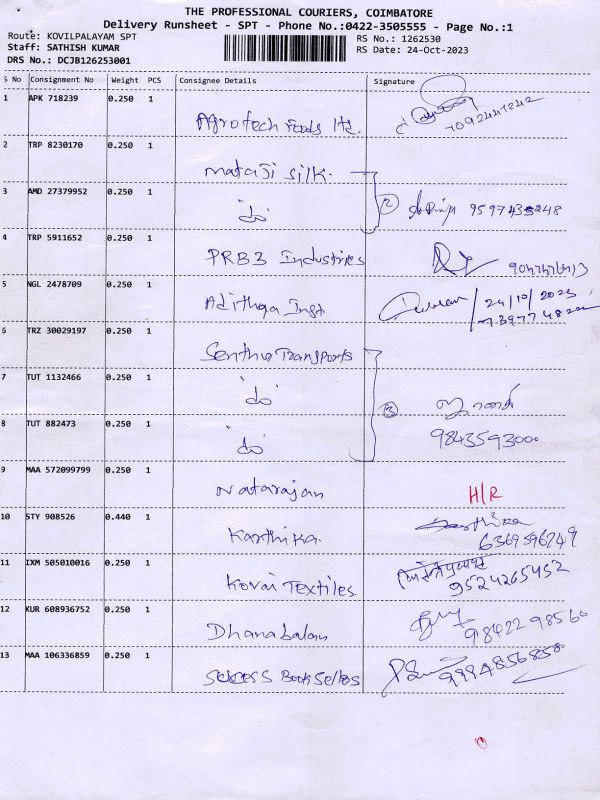 THE PROFESSIONAL COURIERS, COIMBATORE
Delivery Runsheet - SPT - Phone No.:0422-3505555 - Page No.:1
Route: KOVILPALAYAM SPT
RS No.: 1262530
Staff: SATHISH KUMAR
RS Date: 24-Oct-2023
DRS No.: DCJB126253001
S No Consignment No Weight PCS Consignee Details Signature
1 APK 718239 0.250 1
Agrotech Foods ltd. 7092441242
2 TRP 8230170 0.250 1
Mataji Silk.
3 AMD 27379952 0.250 1
"do" 2 9597435248
4 TRP 5911652 0.250 1
PRB3 Industries
5 NGL 2478709 0.250 1
Adithya Inst 24/10/2023
6 TRZ 30029197 0.250 1
Senthur Transports
7 TUT 1132466 0.250 1
"do" 3
8 TUT 882473 0.250 1
"do" 9843593000
9 MAA 572099799 0.250 1
Natarajan H/R
10 STY 908526 0.440 1
Karthika. Karthika
6369596249
11 IXM 505010016 0.250 1
Kovai Textiles 9524265452
12 KUR 608936752 0.250 1
Dhanabalan 98422 98560
13 MAA 106336859 0.250 1
Sekar Book Sellers 9984856858